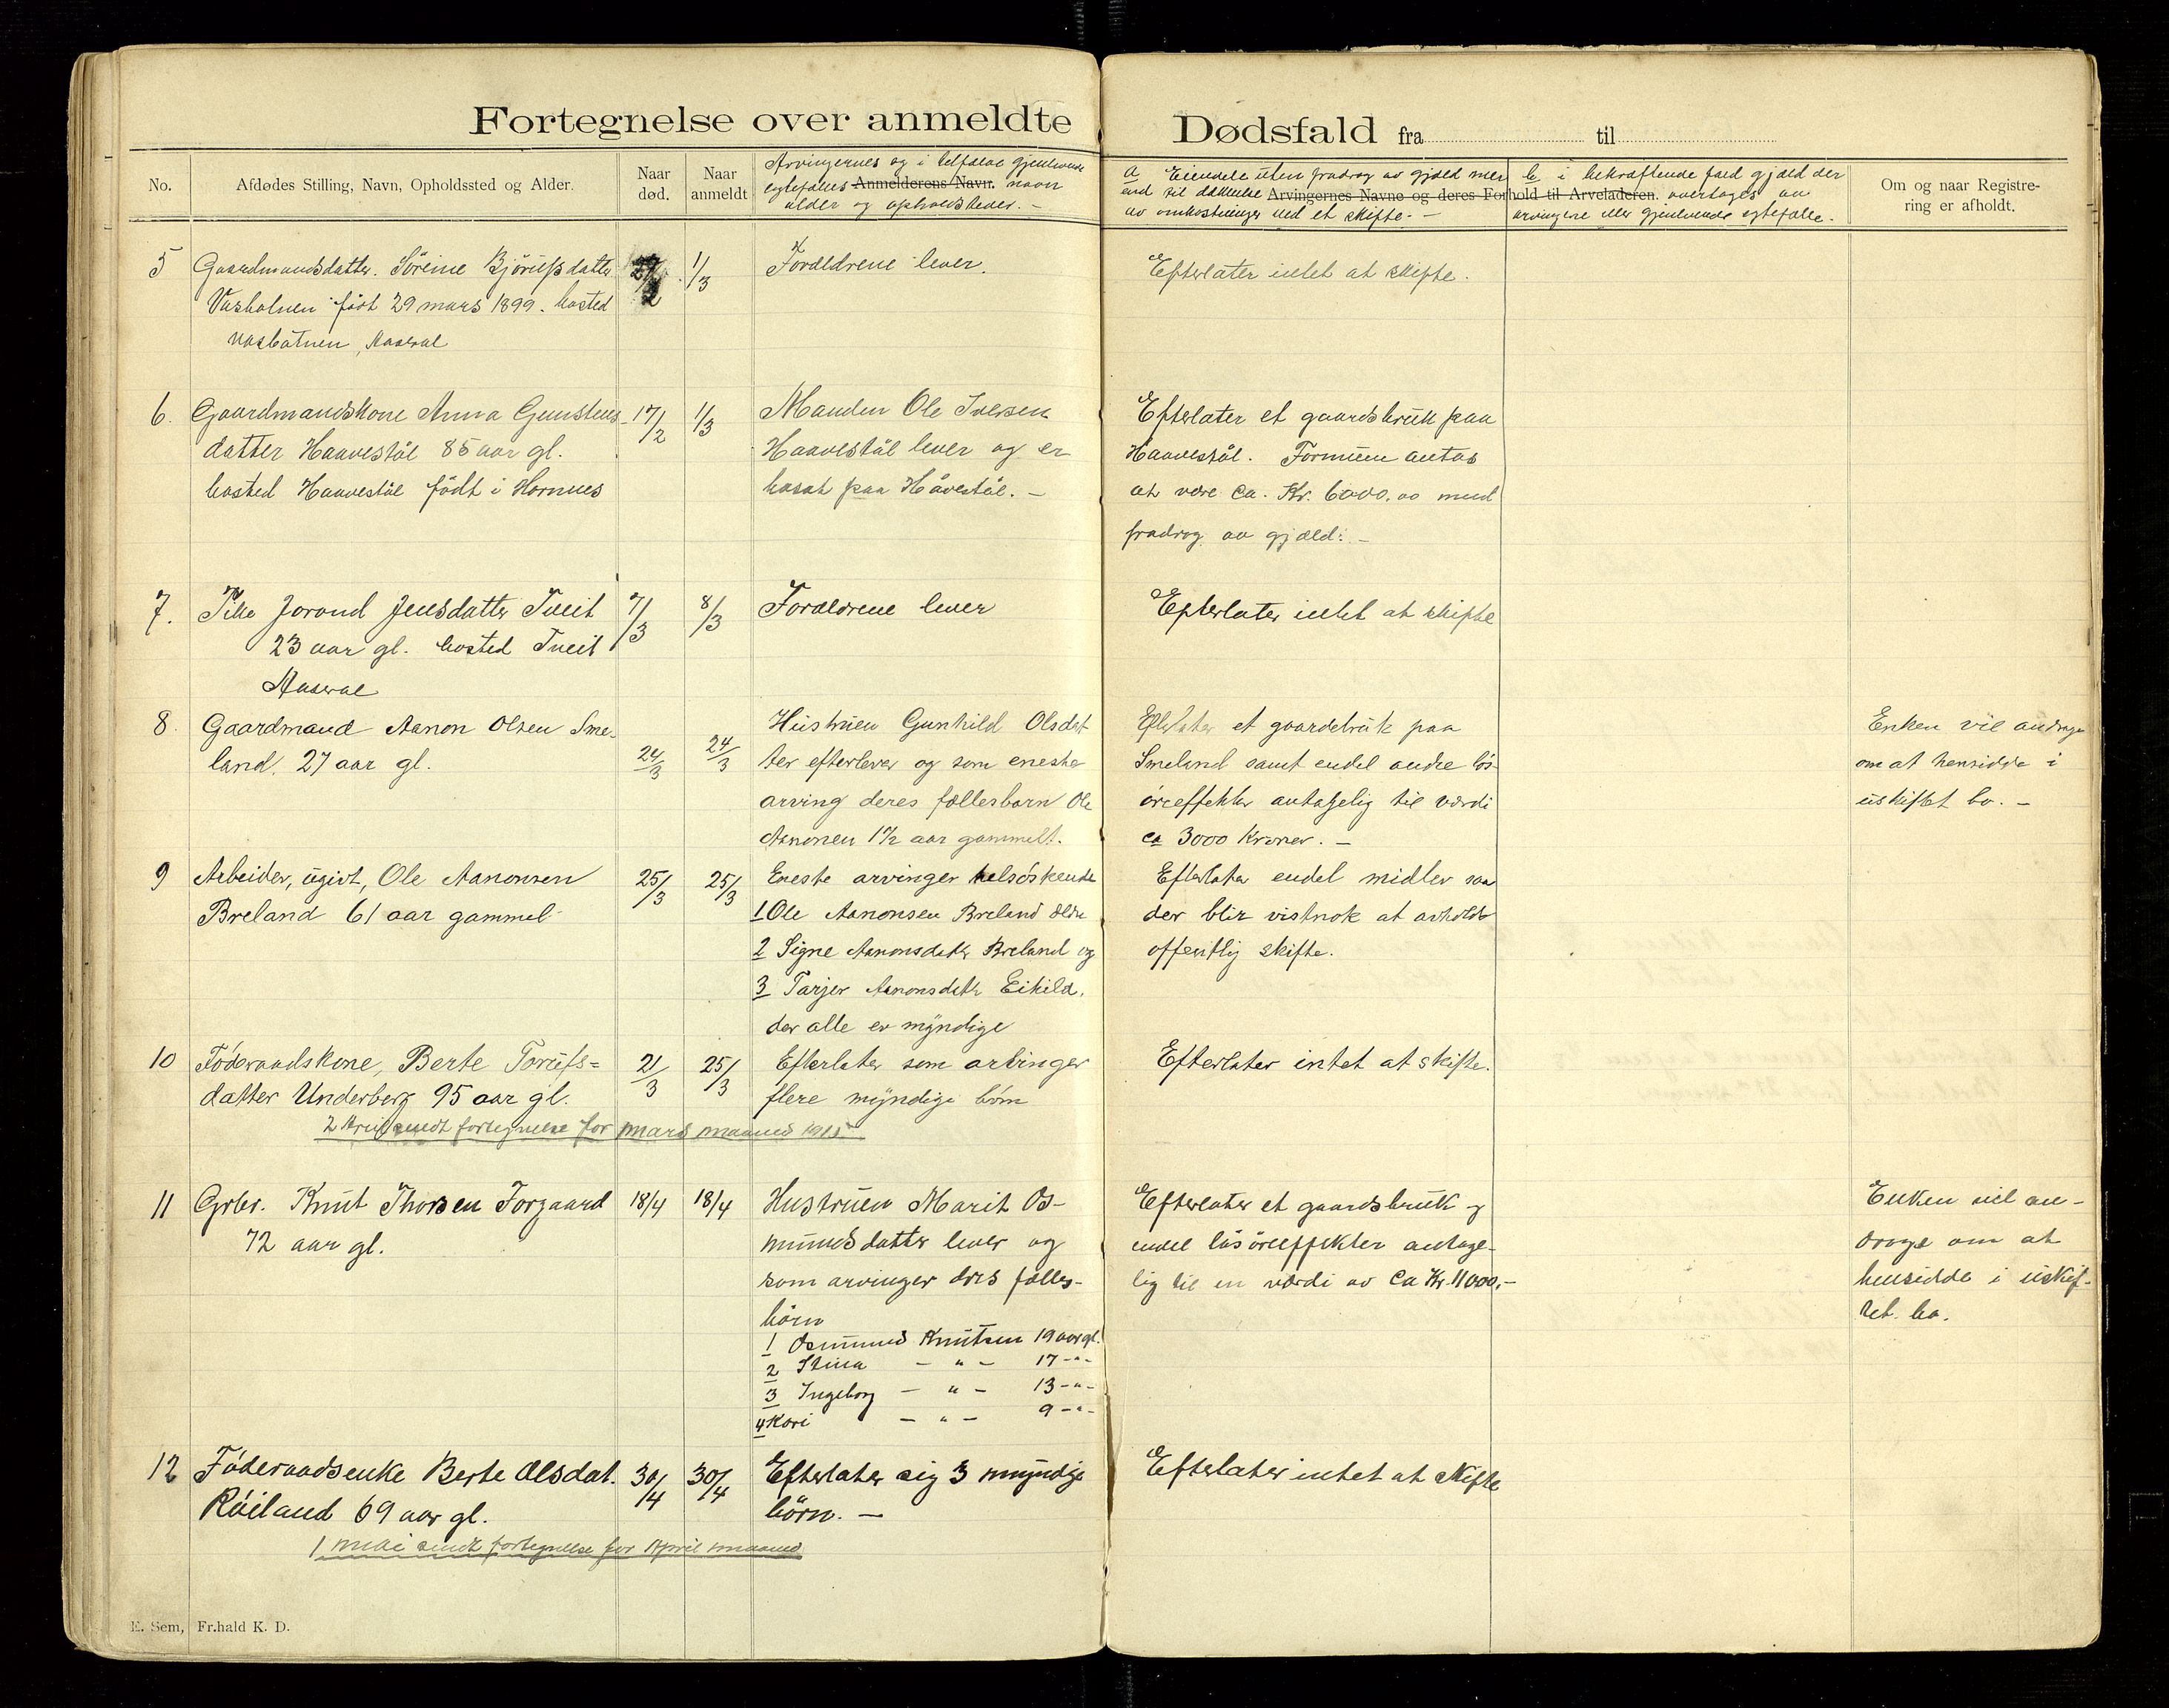 Fortegnelse over anmeldte Dødsfald fra til
No.
Afdødes Stilling, Navn, Opholdssted og Alder.
Naar død.
Naar anmeldt
Arvingernes og i tilfælde gjenlevende
egtefælles Anmelderens Navn. navn
alder og opholdssteder. -
a Eiendele uten fradrag av gjæld mer
end til dækkelse Arvingernes Navne og deres Forhold til Arveladeren.
av omkostninger ved et skifte. -
b i bekræftende fald gjæld der
overtages av
arvingene eller gjenlevende egtefælle.
Om og naar Registre-
ring er afholdt.
5 Gaardmandsdatter. Sóreine datter 1/3 Forældrene lever. Efterlater intet at skifte.
født 29 mars 1899. bosted
Aaseral
6. Gaardmandskone Anna Gunstens- 17/2 1/3 Manden Ole Iversen Efterlater et gaardsbruk paa
datter Haavestøl 85 aar gl. Haavestøl lever og er Haavestøl. Formuen antas
bosted Haavestøl født i Hornnes bosat paa Håvestøl. - at være ca. Kr. 6000.00 med
fradrag av gjæld. -
7. Pike Jorond Jensdatter Tveit 7/3 8/3 Forældrene lever Efterlater intet at skifte
23 aar gl. bosted Tveit
Aaseral
8. Gaardmand Aanon Olsen Sme- 24/3 24/3 Hustruen Gunhild Olsdat Efterlater et gaardsbruk paa Enken vil andrage
land. 27 aar gl. ter efterlever og som eneste Smeland samt endel andre løs om at hensidde i
arving deres fællesbarn Ole øreeffekter antagelig til værdi uskiftet bo. -
Aanonen 1½ aar gammelt. ca 3000 Kroner. -
9 Arbeider, ugivt, Ole Aanonsen 25/3 25/3 Eneste arvinger helsøskende Efterlater endel midler saa
Breland 61 aar gammel 1 Ole Aanonsen Breland ældre der blir vistnok at avholde
2 Signe Aanonsdatter Breland og offentlig skifte.
3 Tarjer Aanonsdatter Eikild.
der alle er myndige
10 Føderaadskone, Berte 21/3 25/3 Efterlater som arvinger Efterlater intet at skifte.
datter Underberg 95 aar gl. flere myndige børn
sendt fortegnelse for mars maaned 1915
11 Grbr. Knut Thorsen Forgaard 18/4 18/4 Hustruen Marit Os- Efterlater et gaardsbruk og Enken vil an-
72 aar gl. mundsdatter lever og endel løsøreeffekter antage- drage om at
som arvinger drs fælles- lig til en værdi av Ca Kr. 11000,- hensidde i uskif-
børn tet bo.
1 Osmund Knutsen 19 aar gl.
2 Stina - " - 17 -"-
3 Ingeborg - " - 13 -"-
4 Kari - " - 9 -"-
12 Føderaadsenke Berte Olsdat. 30/4 30/4 Efterlater sig 3 myndige Efterlater intet at skifte
Røiland 69 aar gl. børn. -
1 mai sendt fortegnelse for April maaned
E. Sem, Fr.hald K. D.